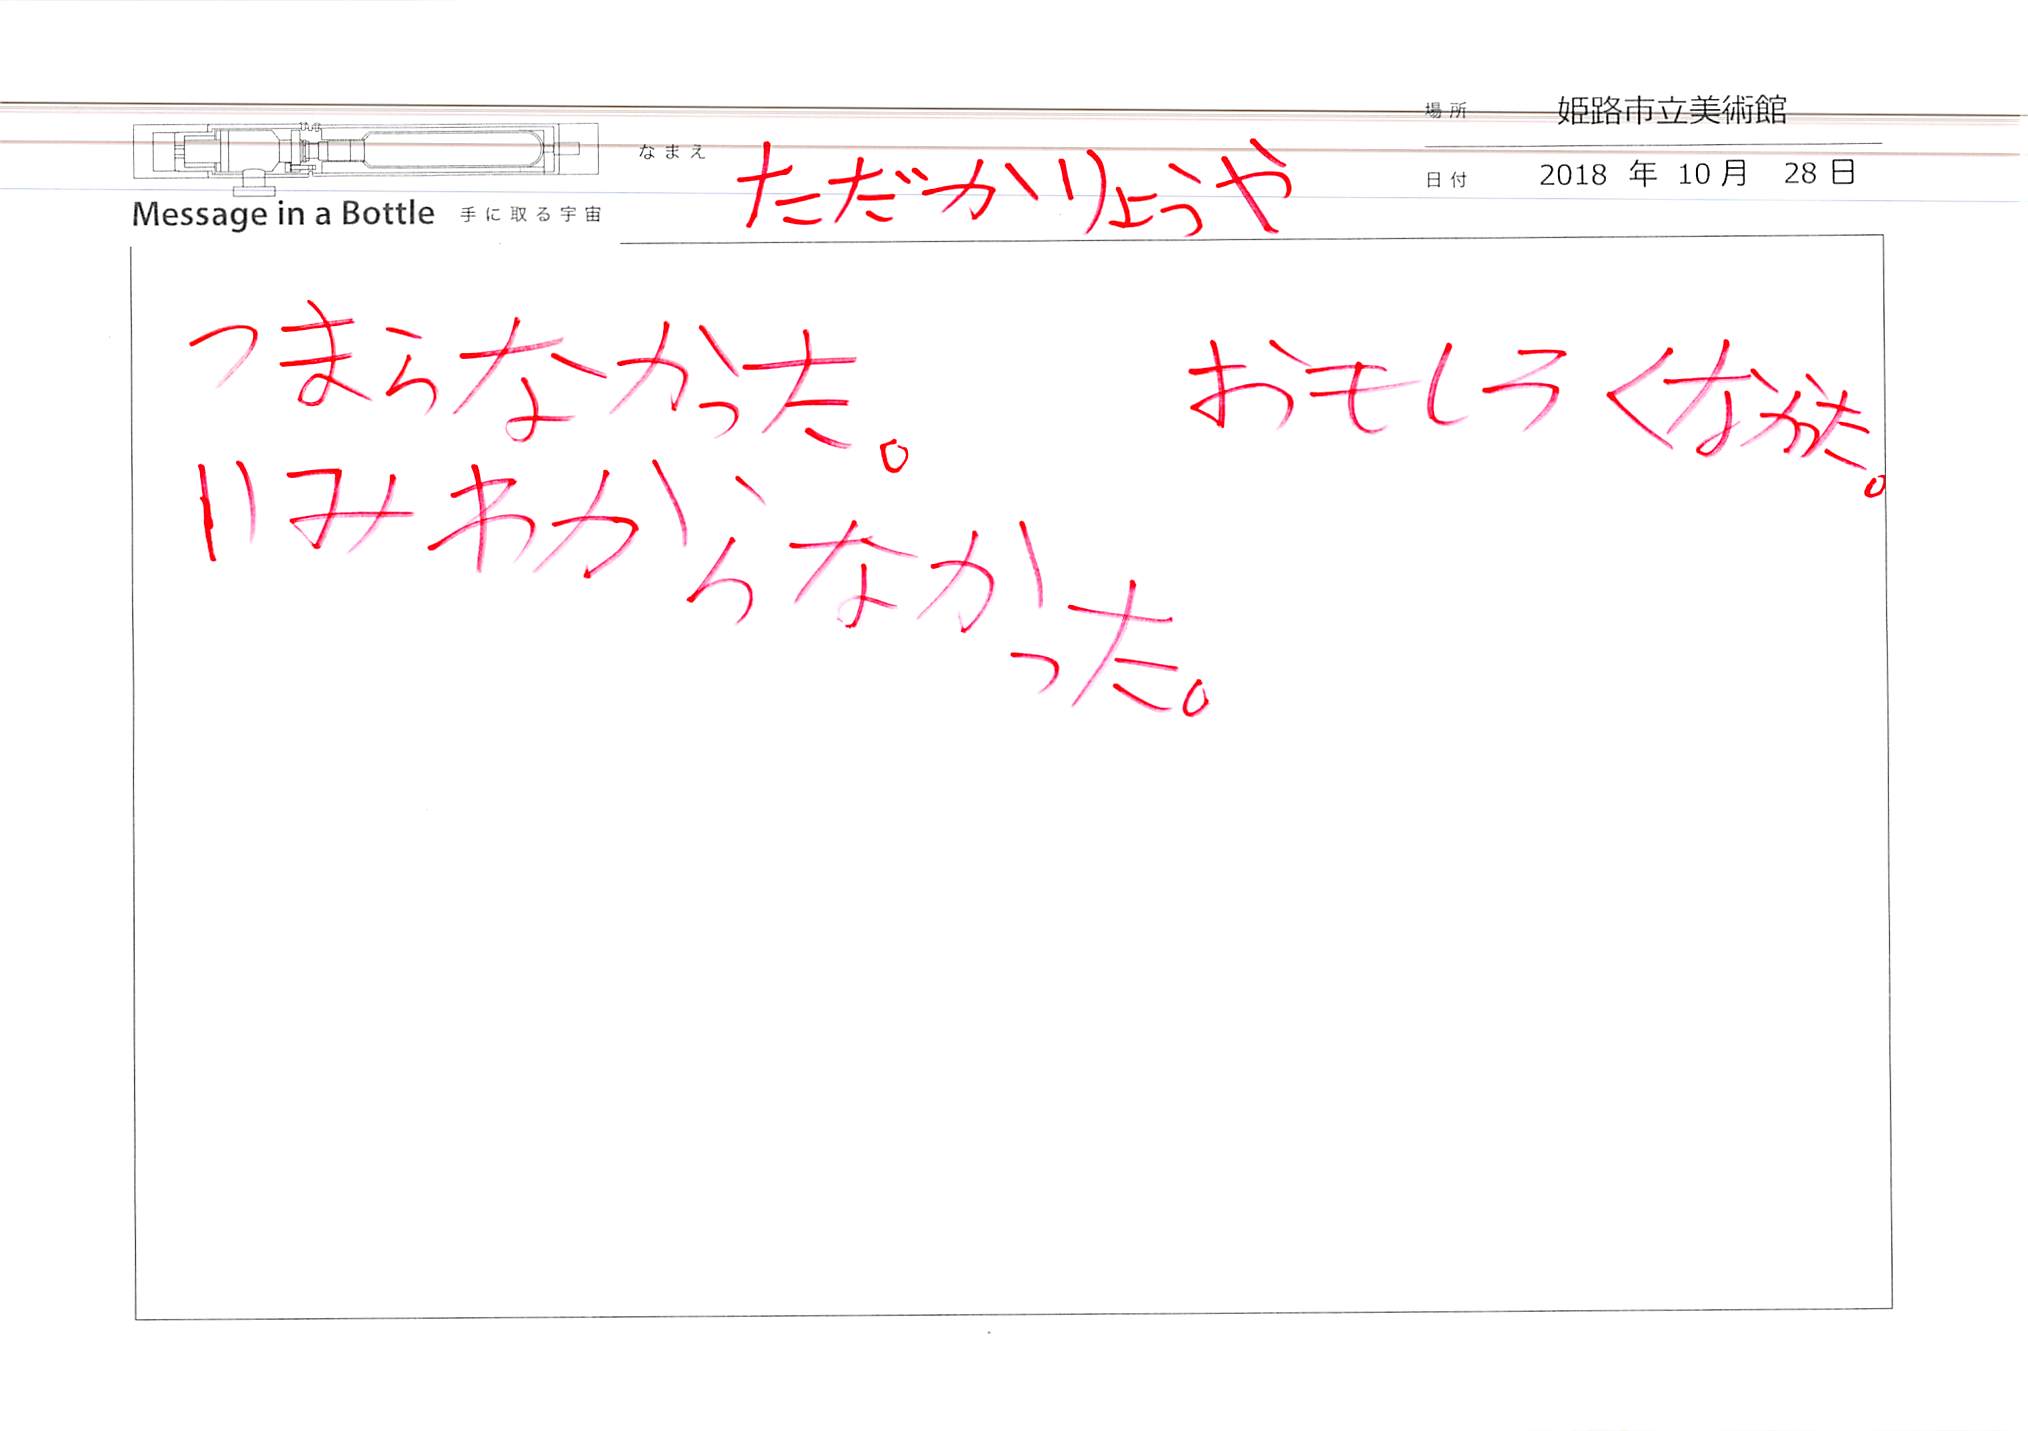 場所 姫路市立美術館
なまえ ただかりょうや
日付 2018 年 10 月 28 日
Message in a Bottle 手に取る宇宙
つまらなかった。 おもしろくなかった。
いみわからなかった。